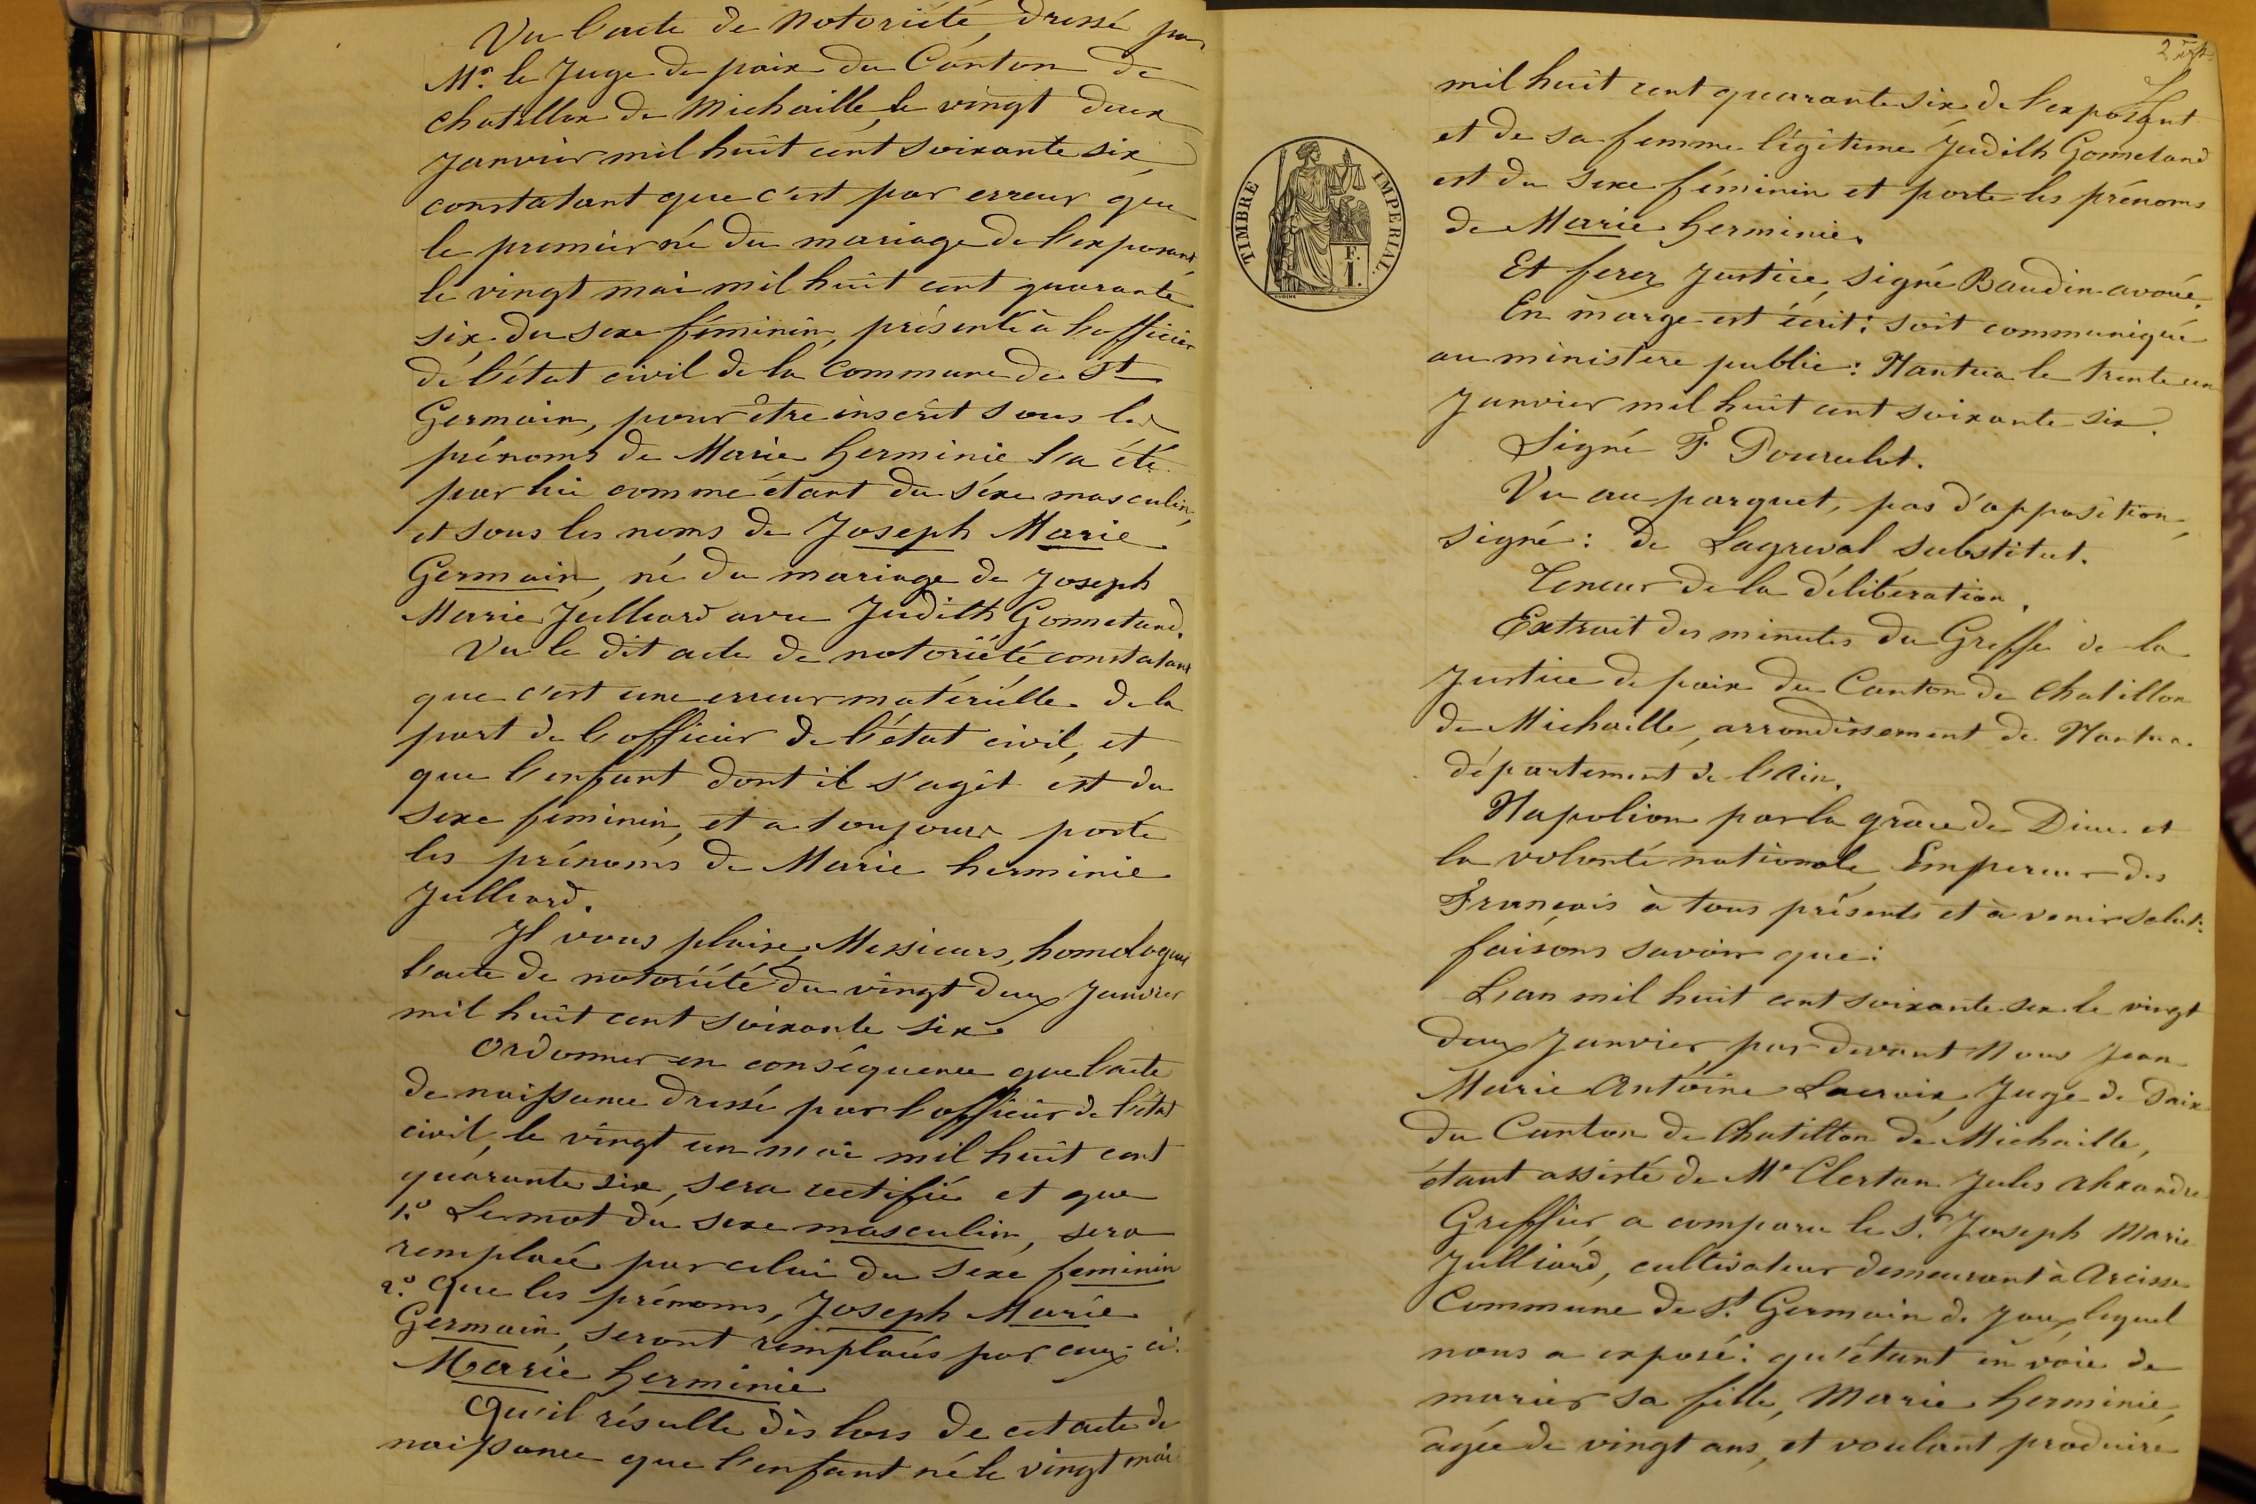 Vu l'acte de notoriété, dressé par
Mr. le Juge de paix du Canton de
Chatillon de Michaille, le vingt deux
Janvier mil huit cent soixante six,
constatant que c'est par erreur que
le premier né du mariage de l'exposant,
le vingt mai mil huit cent quarante
six, du sexe féminin, présenté à l'officier
de l'état civil de la Commune de St
Germain, pour être inscrit sous les
prénoms de Marie herminie l'a été
par lui comme étant du sexe masculin,
et sous les noms de Joseph Marie
Germain, né du mariage de Joseph
Marie Julliard avec Judith Gonnetand.
Vu le dit acte de notoriété constatant
que c'est une erreur matérielle de la
part de l'officier de l'état civil, et
que l'enfant dont il s'agit est du
sexe féminin, et a toujours porté
les prénoms de Marie herminie
Julliard.
Il vous plaise, Messieurs, homologuer
l'acte de notoriété du vingt deux Janvier
mil huit cent soixante six.
Ordonner en conséquence que l'acte
de naissance dressé par l'officier de l'état
civil, le vingt un mai mil huit cent
quarante six, sera rectifié et que
1.º Le mot du sexe masculin, sera
remplacé par celui du sexe feminin
2.º Que les prénoms, Joseph Marie
Germain, seront remplacés par ceux ci:
Marie herminie
Qu'il résulte dès lors de cet acte de
naissance que l'enfant né le vingt mai
mil huit cent quarante six de l'exposant
et de sa femme légitime Judith Gonnetand
est du sexe féminin et porte les prénoms
de Marie herminie.
TIMBRE IMPERIAL.
F.
1.
Et ferez Justice, signé Baudin avoué.
En marge est écrit: soit communiqué
au ministère public: Nantua le trente un
Janvier mil huit cent soixante six.
Signé F
Vu au parquet, pas d'opposition,
signé: de Lagreval substitut.
Teneur de la délibération.
Extrait des minutes du Greffe de la
Justice de paix du Canton de Chatillon
de Michaille, arrondissement de Nantua.
département de l'Ain.
Napoléon par la grâce de Dieu et
la volonté nationale, Empereur des
Français à tous présents et à venir salut:
faisons savoir que:
L'an mil huit cent soixante six le vingt
deux Janvier, par devant Nous Jean
Marie Antoine Lacroix, Juge de Paix
du Canton de Chatillon de Michaille,
étant assisté de Me Clertan Jules Alexandre
Greffier, a comparu le Sr. Joseph Marie
Julliard, cultivateur demeurant à
Commune de St. Germain de Joux, lequel
nous a exposé: qu'étant en voie de
marier sa fille, Marie herminie,
agée de vingt ans, et voulant produire